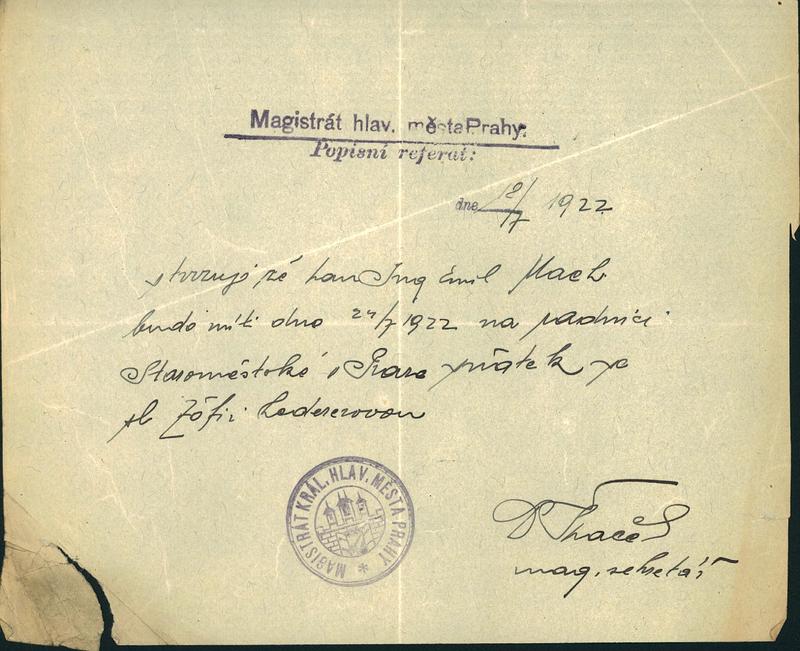 Magistrát hlav. města Prahy.
Popisní referat:
dne 18/7 1922
stvrzuji že pan Ing Emil Mach
bude míti dne 24/7 1922 na radnici
Staroměstské v Praze sňatek se
sl Žofií Ledererovou
MAGISTRÁT KRÁL. HLAV. MĚSTA PRAHY
mag. sekretář